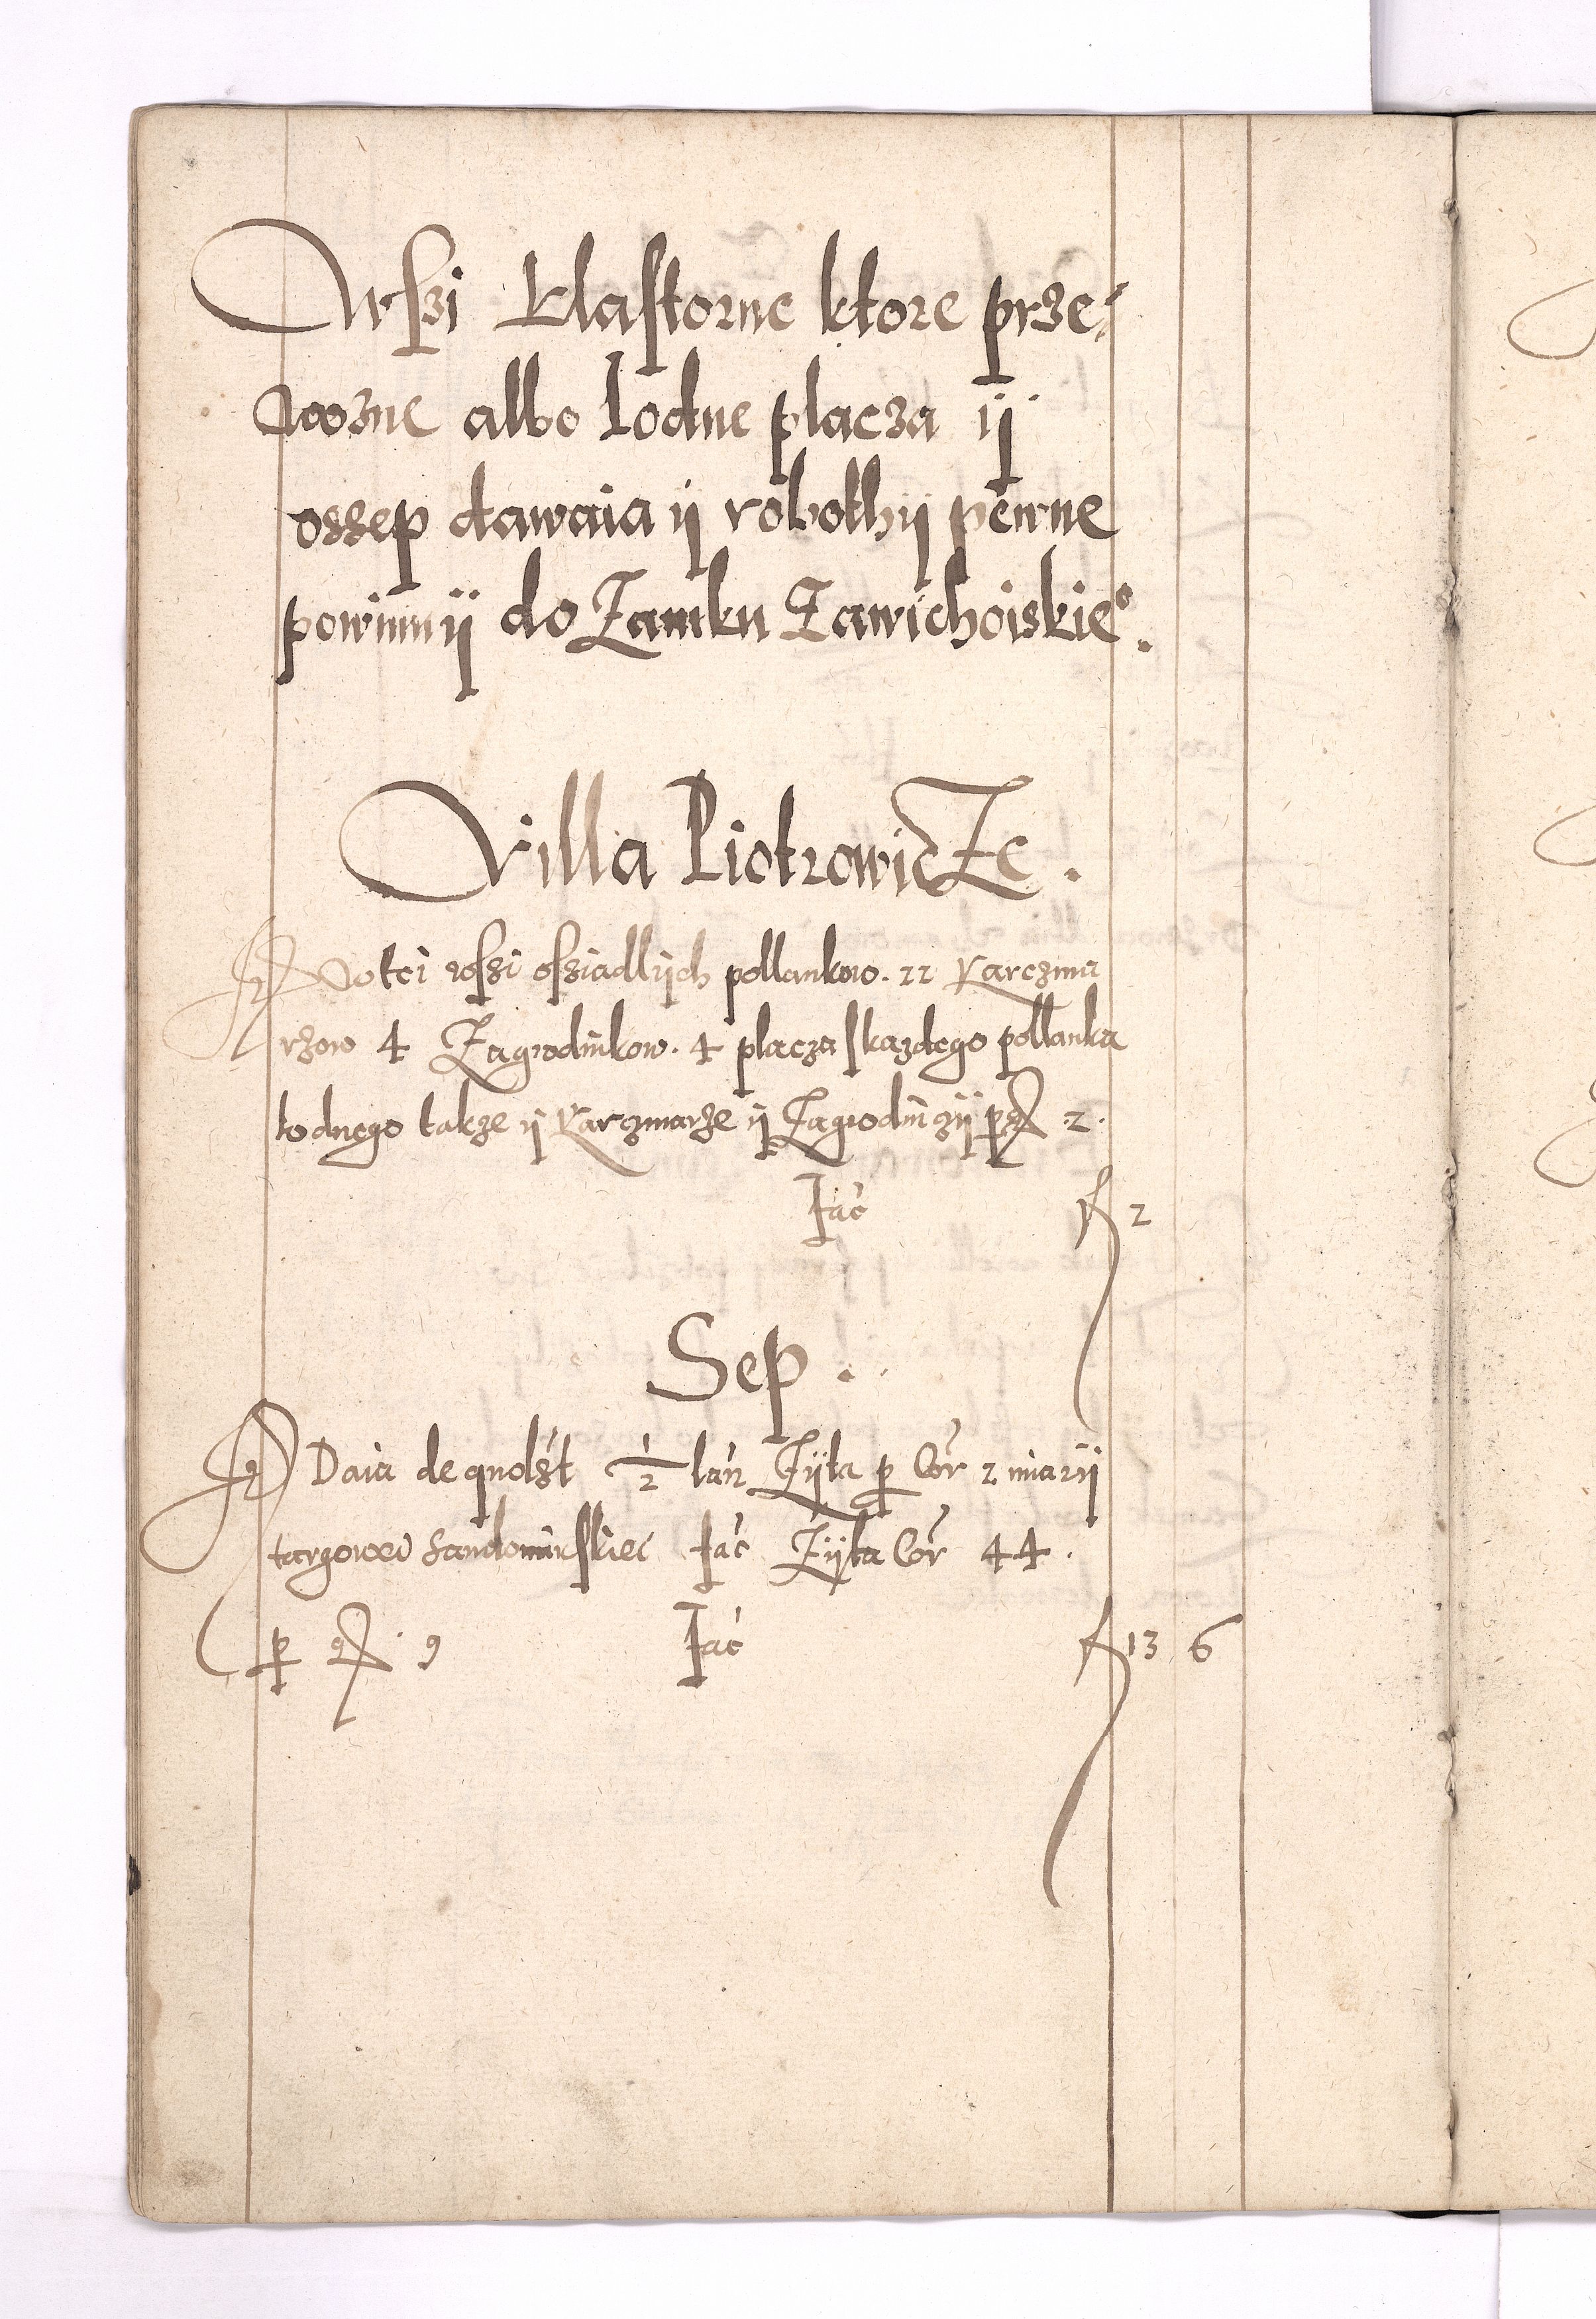 Wsszi klastorne ktore prze⸗
wozne albo lodne placza ij
ossep dawaia ij robothij pewne
powinnij do Zamku Zawichoiskie°.
Villa PiotrowicZe.
W tei wsszi osziadlijch pollankow. 22 karczma
rzow 4 Zagrodnikow. 4 placza skazdego pollanka
lodnego takze ij karczmarze ij Zagrodniczij per 2.
Fac 2
Sep.
Daia de quolibet 1/2 lan Zijta per Cor 2 miarij
targowei Sandomirskiei fac Zijta Cor 44.
per 9 Fac 13 6